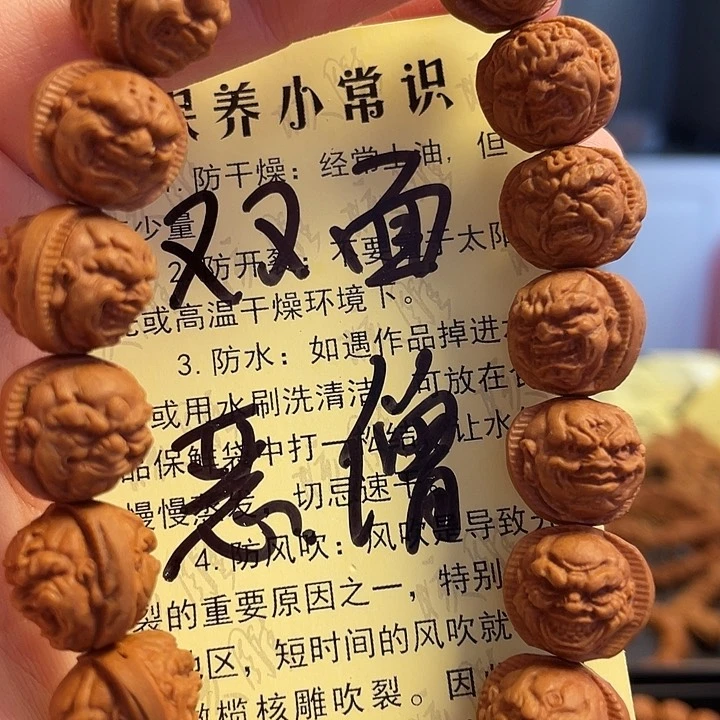 保养小常识
1. 防干燥：经常上油，但
少量
双面
2. 防开裂：不要 于太阳
或高温干燥环境下。
3. 防水：如遇作品掉进
或用水刷洗清洁 可放在
恶僧
品保鲜袋中打一 让水
慢慢蒸发，切忌速干
4. 防风吹：风吹是导致
裂的重要原因之一，特别
地区，短时间的风吹就
橄榄核雕吹裂。因